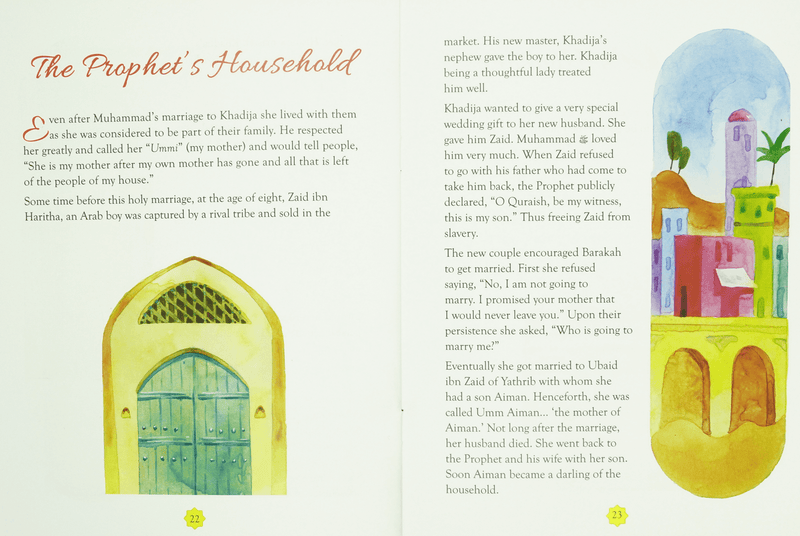 The Prophet's Household
Even after Muhammad's marriage to Khadija she lived with them
as she was considered to be part of their family. He respected
her greatly and called her "Ummi" (my mother) and would tell people,
"She is my mother after my own mother has gone and all that is left
of the people of my house."
Some time before this holy marriage, at the age of eight, Zaid ibn
Haritha, an Arab boy was captured by a rival tribe and sold in the
22
market. His new master, Khadija's
nephew gave the boy to her. Khadija
being a thoughtful lady treated
him well.
Khadija wanted to give a very special
wedding gift to her new husband. She
gave him Zaid. Muhammad ﷺ loved
him very much. When Zaid refused
to go with his father who had come to
take him back, the Prophet publicly
declared, "O Quraish, be my witness,
this is my son." Thus freeing Zaid from
slavery.
The new couple encouraged Barakah
to get married. First she refused
saying, "No, I am not going to
marry. I promised your mother that
I would never leave you." Upon their
persistence she asked, "Who is going to
marry me?"
Eventually she got married to Ubaid
ibn Zaid of Yathrib with whom she
had a son Aiman. Henceforth, she was
called Umm Aiman... 'the mother of
Aiman.' Not long after the marriage,
her husband died. She went back to
the Prophet and his wife with her son.
Soon Aiman became a darling of the
household.
23